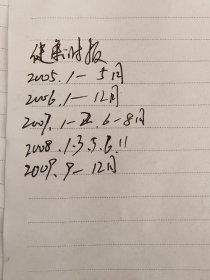 健康时报
2005.1—5月
2006.1—12月
2007.1—2.6—8月
2008.1.3.5.6.11
2009.9—12月